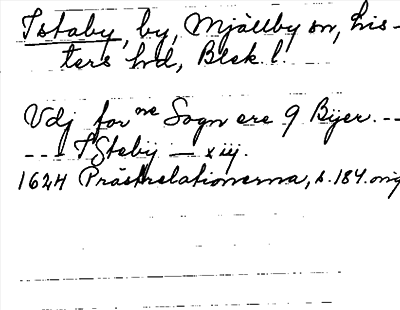 Istaby, by, Mjällby sn, Lis-
ters hd, Blek. l.
Vdj for ne Sogn ere 9 Bÿer. --
--- IStebÿ — xiij.
1624 Prästrelationerna, s. 184. orig